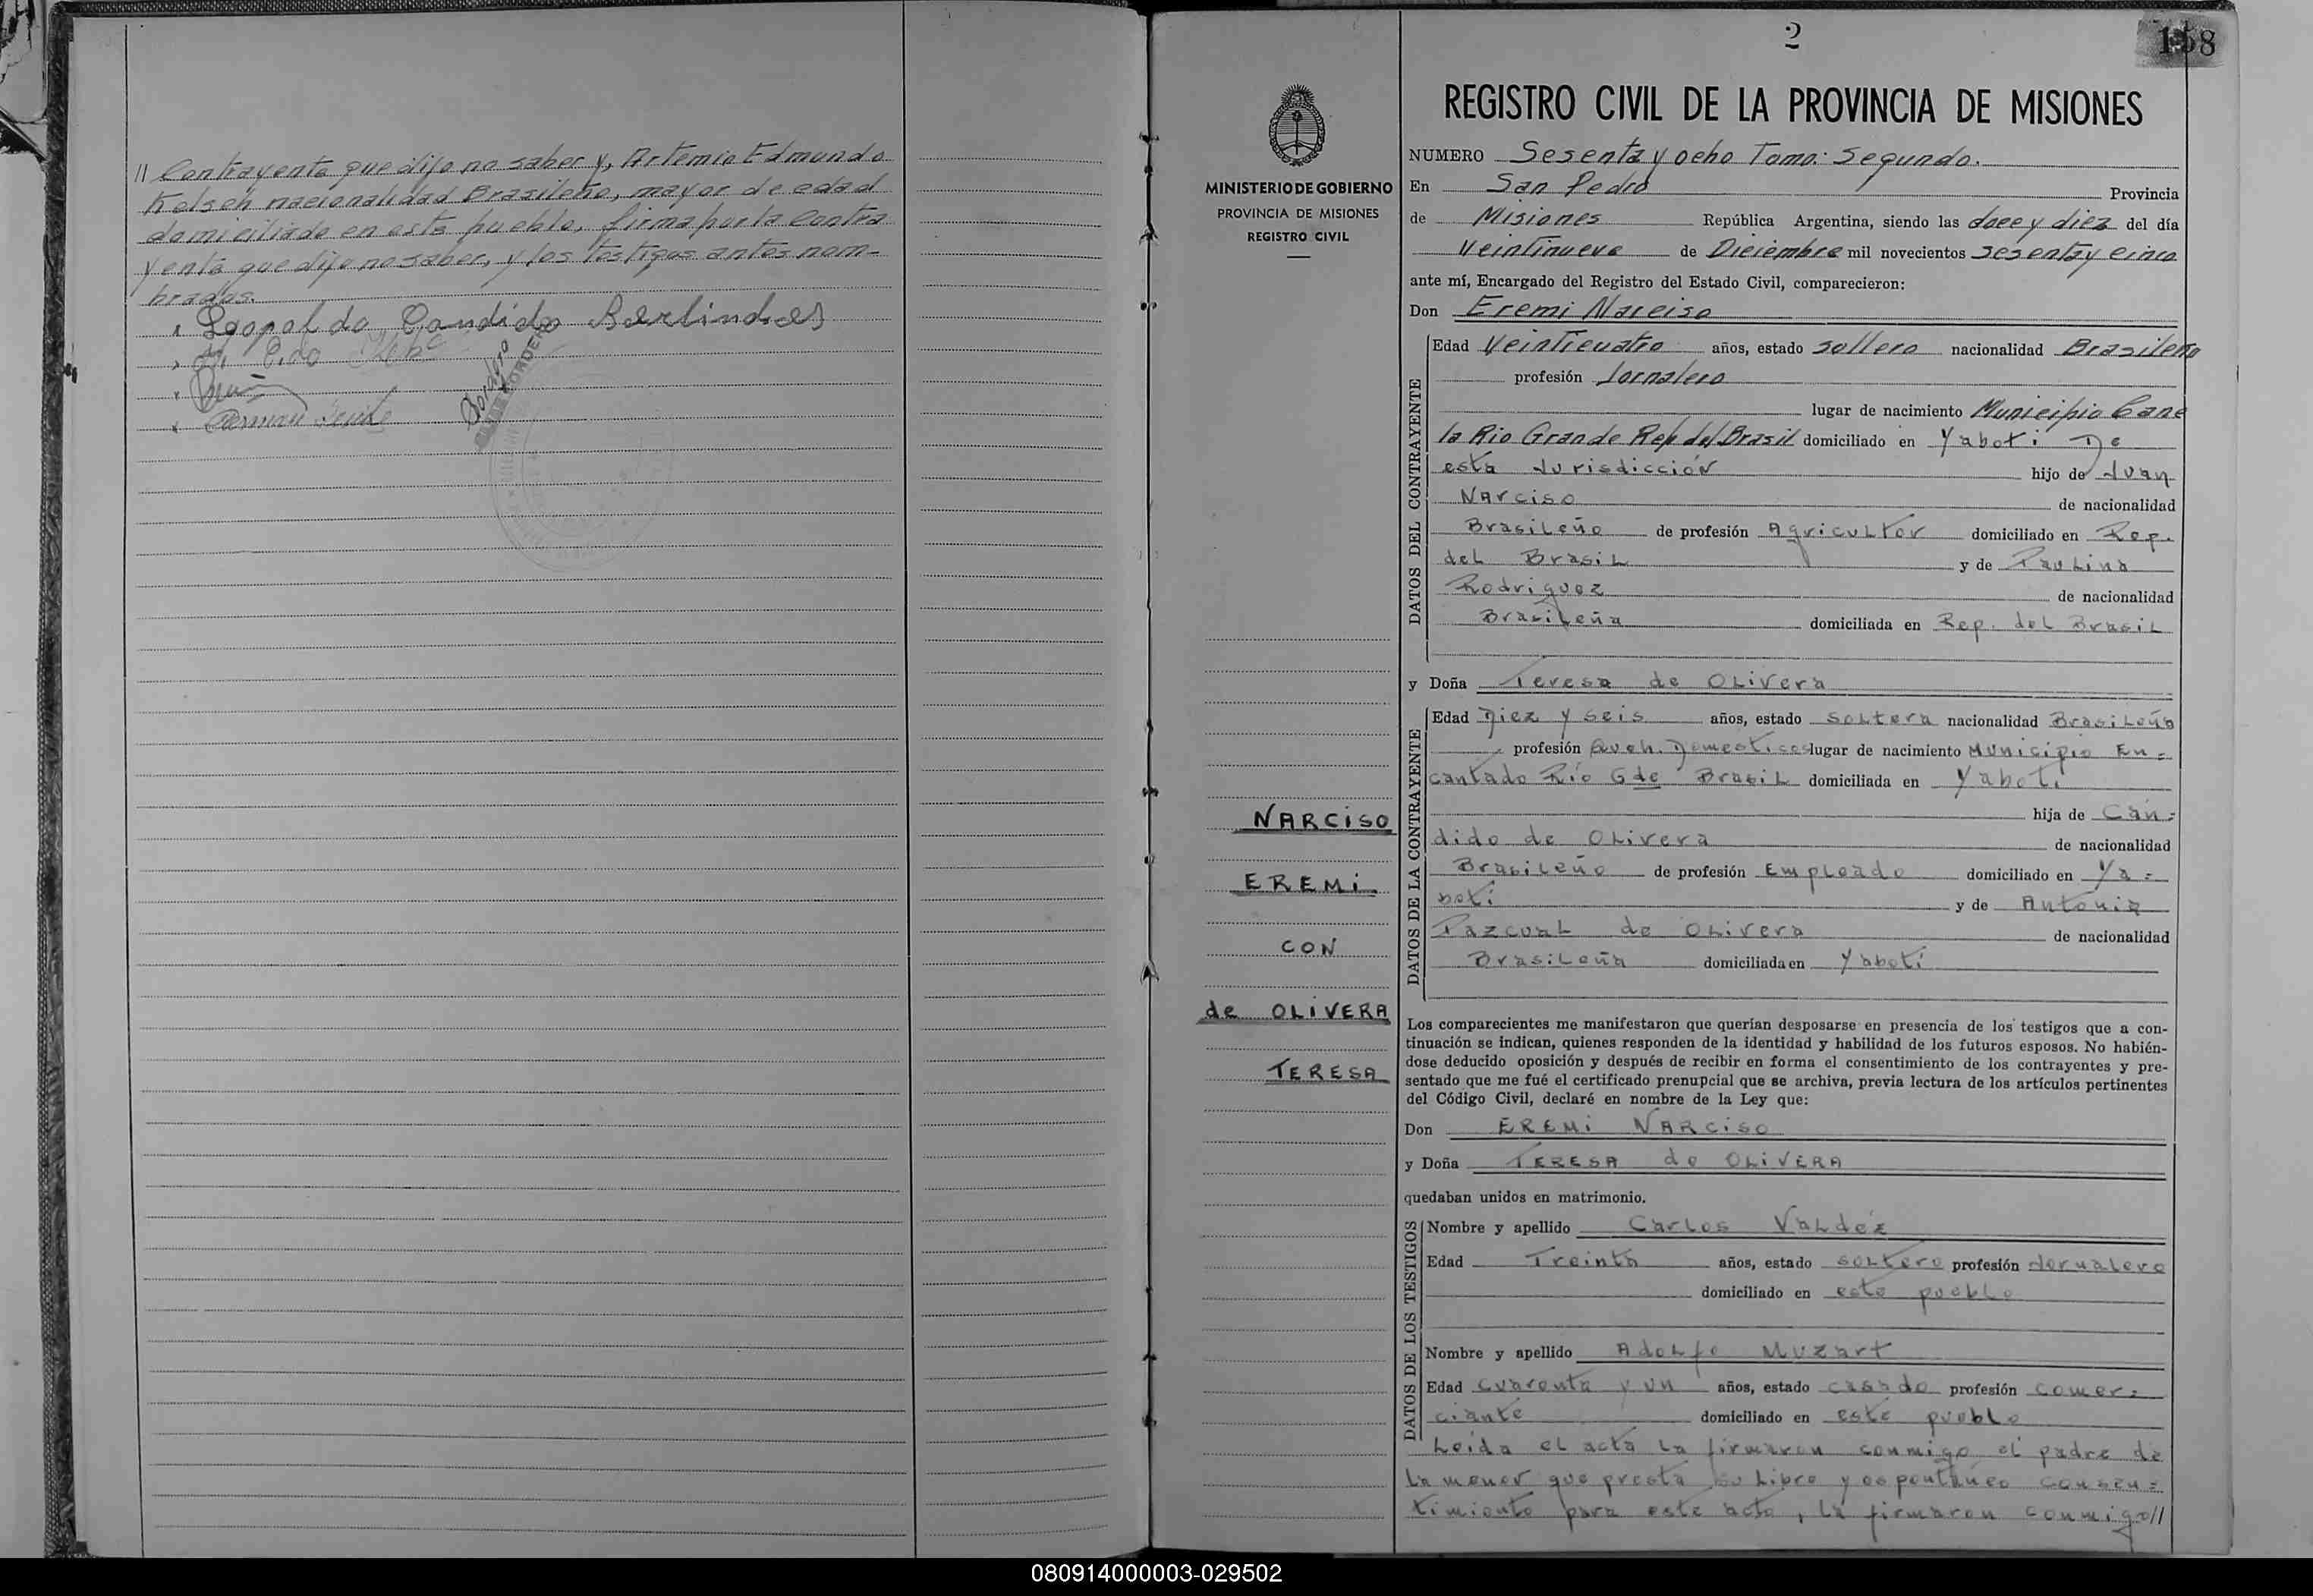 // Contrayente que dijo no saber y, Artemio Edmundo
Kelsch nacionalidad Brasileño, mayor de edad
domiciliado en este pueblo, firma por la Contra
yente que dijo no saber, y los testigos antes nom-
brados.
Leopoldo Candido Berlindes
Bordero
2
158
REGISTRO CIVIL DE LA PROVINCIA DE MISIONES
MINISTERIO DE GOBIERNO
PROVINCIA DE MISIONES
REGISTRO CIVIL
NARCISO
EREMI
CON
de OLIVERA
TERESA
NUMERO Sesenta y ocho Tomo: Segundo.
En San Pedro Provincia
de Misiones República Argentina, siendo las doce y diez del día
Veintinueve de Diciembre mil novecientos Sesenta y cinco
ante mí, Encargado del Registro del Estado Civil, comparecieron:
Don Eremi Narciso
DATOS DEL CONTRAYENTE
Edad Veinticuatro años, estado soltero nacionalidad Brasileño
profesión Jornalero
lugar de nacimiento Municipio Cane
la Rio Grande Rep del Brasil domiciliado en Yaboti De
esta Jurisdicción hijo de Juan
Narciso de nacionalidad
Brasileño de profesión Agricultor domiciliado en Rep.
del Brasil y de Paulina
Rodriguez de nacionalidad
Brasileña domiciliada en Rep. del Brasil
y Doña Teresa de Olivera
DATOS DE LA CONTRAYENTE
Edad Diez y seis años, estado soltera nacionalidad Brasileña
profesión Queh. Domesticos lugar de nacimiento Municipio En=
cantado Río Gde Brasil domiciliada en Yaboti
hija de Can=
dido de Olivera de nacionalidad
Brasileño de profesión Empleado domiciliado en Ya=
boti y de Antonia
Pazcual de Olivera de nacionalidad
Brasileña domiciliada en Yabotí
Los comparecientes me manifestaron que querían desposarse en presencia de los testigos que a con-
tinuación se indican, quienes responden de la identidad y habilidad de los futuros esposos. No habién-
dose deducido oposición y después de recibir en forma el consentimiento de los contrayentes y pre-
sentado que me fué el certificado prenupcial que se archiva, previa lectura de los artículos pertinentes
del Código Civil, declaré en nombre de la Ley que:
Don EREMI NARCISO
y Doña TERESA de OLIVERA
quedaban unidos en matrimonio.
DATOS DE LOS TESTIGOS
Nombre y apellido Carlos Valdéz
Edad Treinta años, estado soltero profesión Jornalero
domiciliado en este pueblo
Nombre y apellido Adolfo Muzart
Edad cuarenta y un años, estado casado profesión comer=
ciante domiciliado en este pueblo
Leída el acta la firmaron conmigo el padre de
la menor que presta su libre y espontáneo consen=
timiento para este acto, la firmaron conmigo//
080914000003-029502